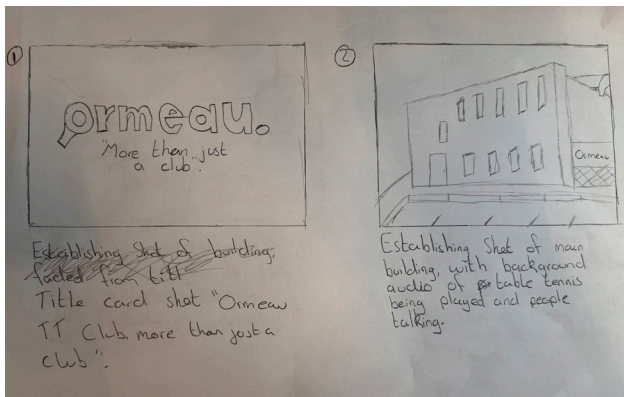 1
ormeau.
"More than just
a club".
Establishing Shot of building,
faded from titl
Title card shot "Ormeau
TT Club, more than just a
club".
2
Ormeau
Establishing Shot of main
building, with background
audio of table tennis
being played and people
talking.